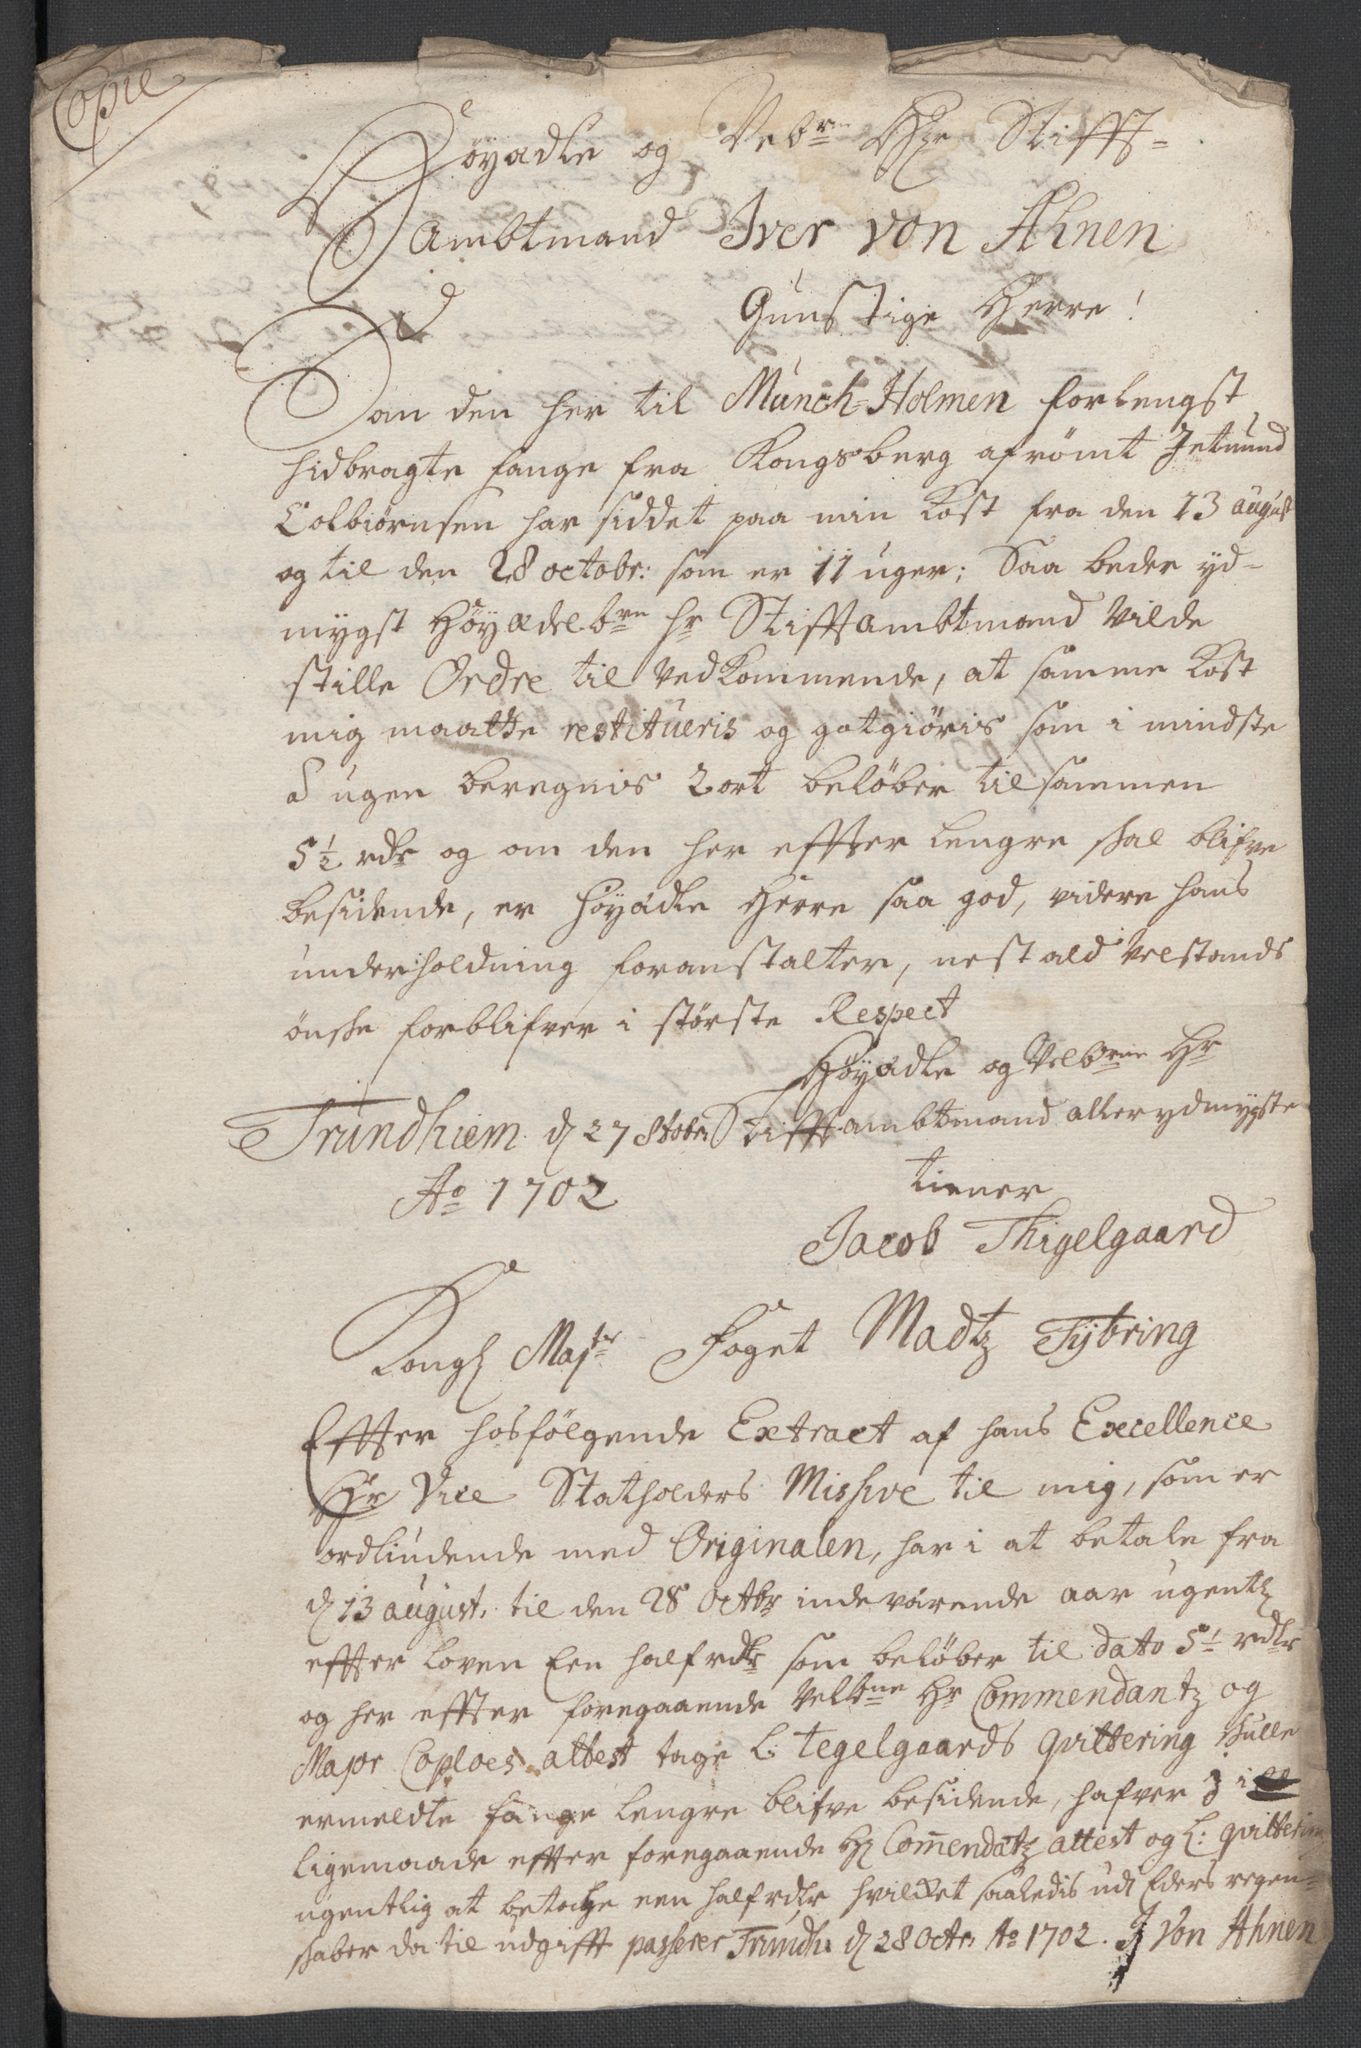 Copie
Höyædle og Velbr: Hr Stifft-
ambtmand Iver von Ahnen
Gunstige Herre!
Saa som den her til Münch-Holmen forlengst
hidbragte fange fra Kongsberg afrömt Jetmund
Colbiörnsen har siddet paa min Kost fra den 13 august
og til den 28 octobr: som er 11 uger; Saa beder yd-
mygst Höyædelbrn hr Stifftambtmand vilde
stille Ordre til vedkommende, at samme Kost
mig maatte restitueris og gotgiöris som i mindste
P ugen beregnis 2 ort belöber tilsammen
5½ rdr og om den her effter lengre skal blifve
besidende, er höyædle Herre saa god, videre hans
underholdning foranstalter, nest ald velstands
önske forblifver i störste Respect
Höyædle og Velbrne Hr
Trundhiem d 27 8tobr: Stifftambtmand allerydmygste
Ao 1702 tiener
Jacob Thigelgaard
Kongl Majtr Foget Madtz Tÿbring
Effter hosfölgende Extract af hans Excellence
Hr Vice Statholders Missive til mig, som er
ordliudende med Originalen, har i at betale fra
d 13 august. til den 28 Octbr indeværende aar ugentl
effter loven Een half rdr som belöber til dato 5½ rdlr
og her effter foregaaende Velbne Hr Commendantz og
Major Coploes attest tage L: Tegelgaards qvittering skulle
ermeldte fange lengre blifve besidende, hafver i
ligemaade effter foregaaende Hr Commendatz attest og L: qvittering
ugentlig at betahle een half rdlr hvilcket saaledis udi Eders regen-
skaber da til udgifft passerer Trundh: d 28 Octr: Ao 1702. J Von Ahnen